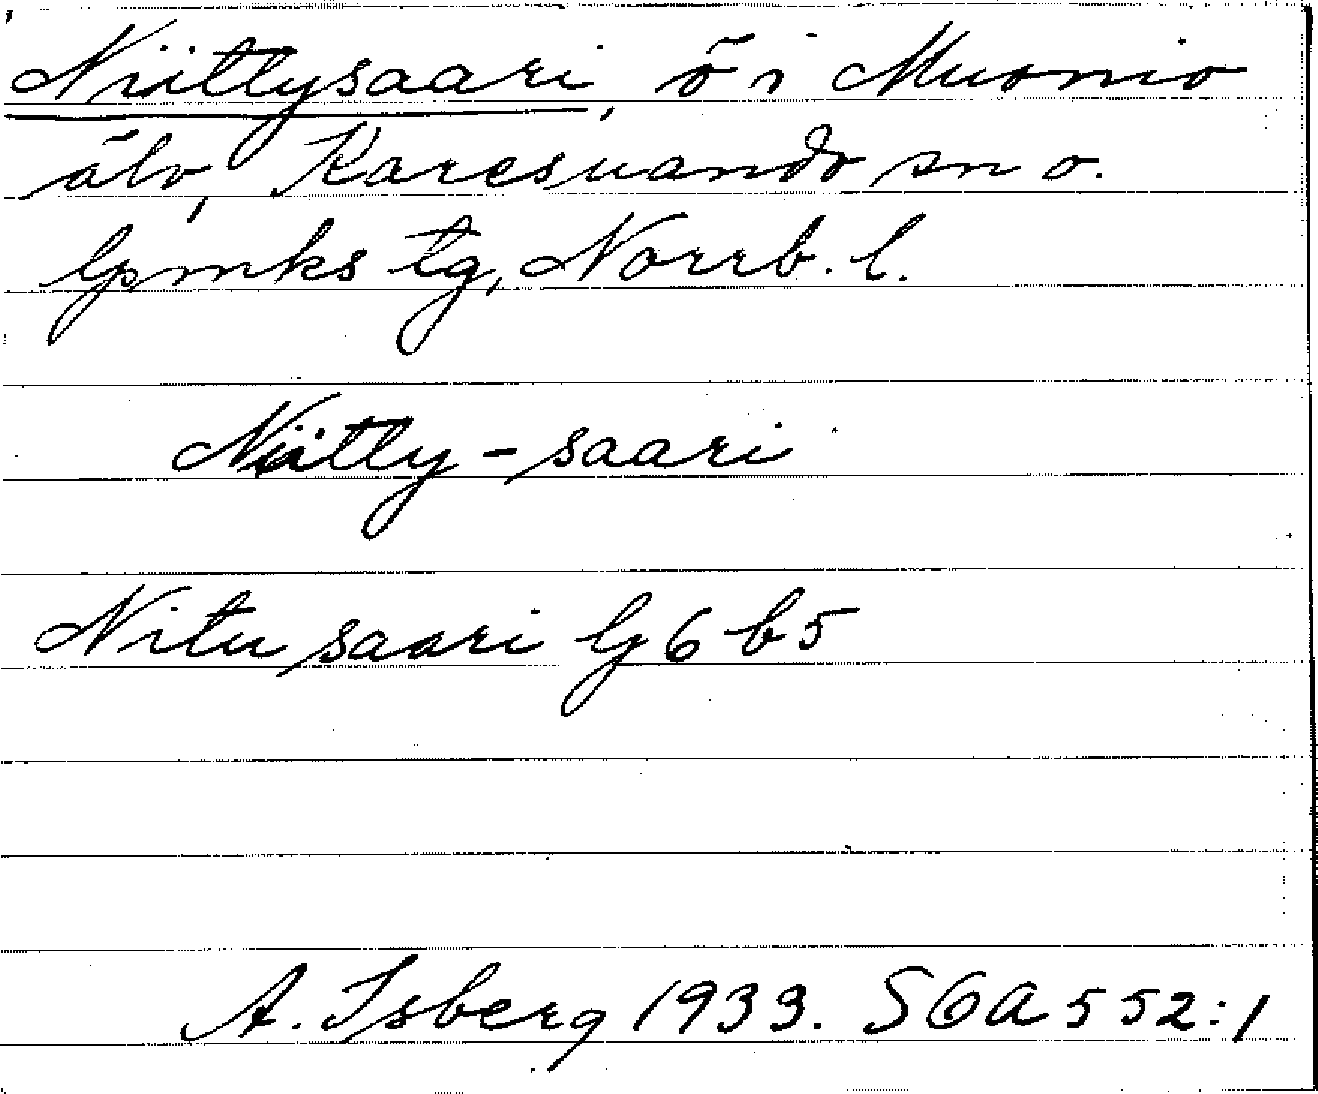 Niittysaari, ö i Muonio
älv, Karesuando sn o.
lpmks tg, Norrb. l.
Niitty-saari
Nitu saari lg 6 b 5
A. Isberg 1933. SOA 552:1